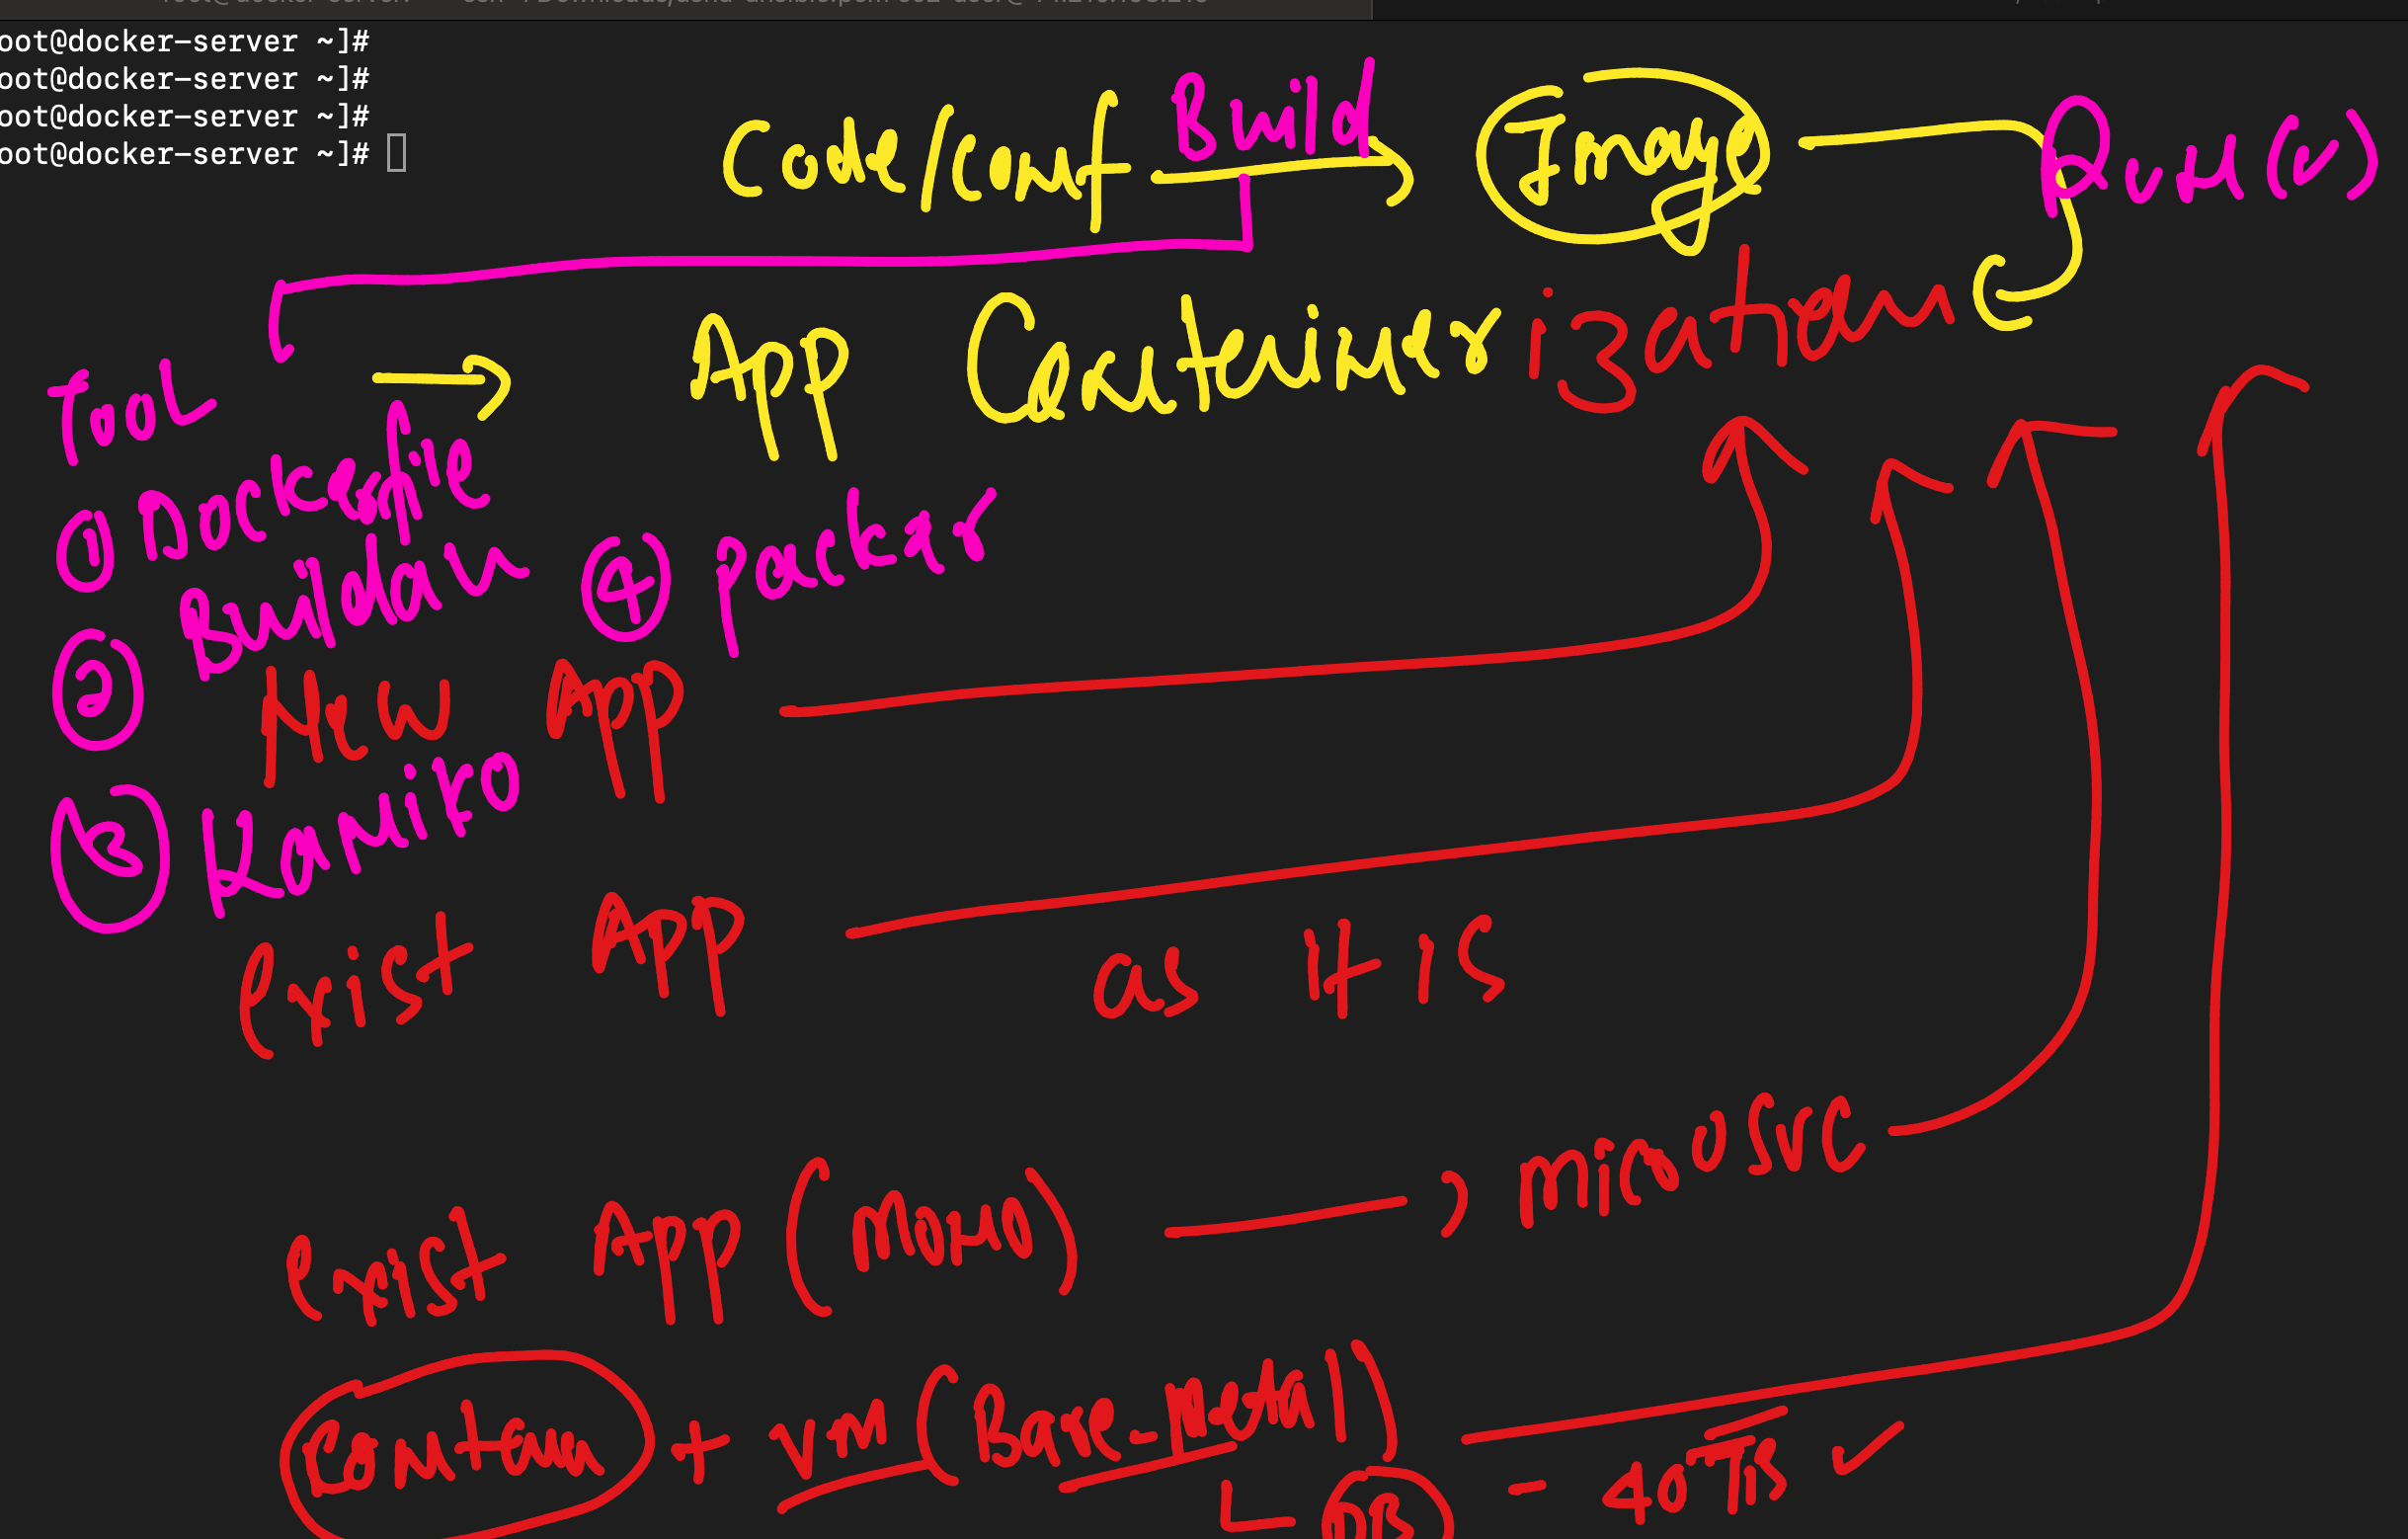 oot@docker-server ~]#
oot@docker-server ~]#
oot@docker-server ~]#
oot@docker-server ~]#
Code/conf Build Image Run(c)
Tool App Containerization
① Dockerfile
② Buildah ④ packer
New App
③ Kaniko
Exist App as it is
exist App (mono) microsrc
Contain + VM (Bare_Metal)
DB - 40TB